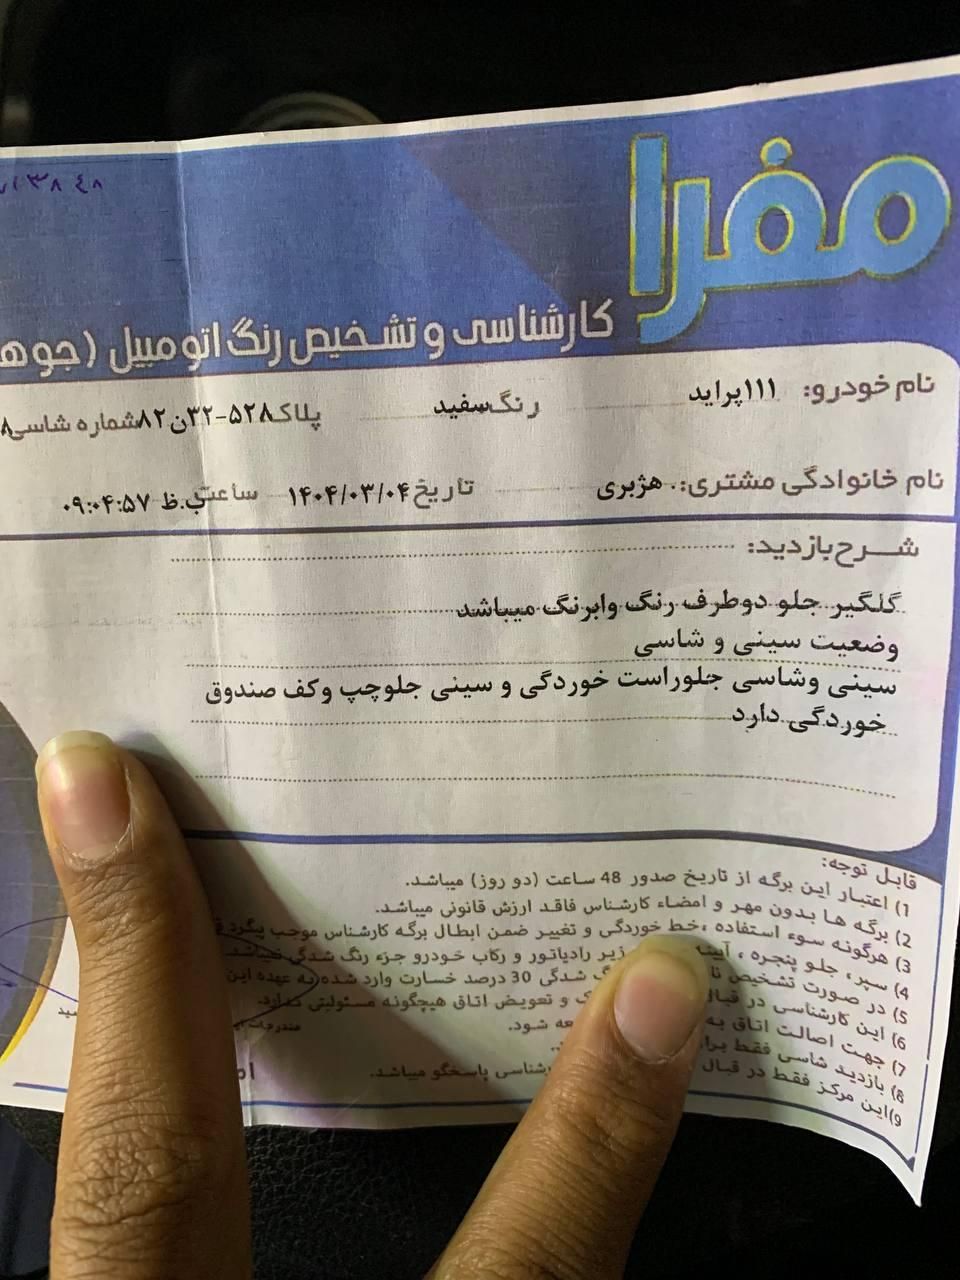 مفرا
کارشناسی و تشخیص رنگ اتومبیل (جوه
نام خودرو: ۱۱۱پراید رنگ سفید پلاک ۵۲۸-۳۲ن۸۲ شماره شاسی ۸
نام خانوادگی مشتری: . هژبری تاریخ ۱۴۰۴/۰۳/۰۴ ساعت ب.ظ ۰۹:۰۴:۵۷
شرح بازدید:
گلگیر جلو دوطرف رنگ وابرنگ میباشد
وضعیت سینی و شاسی
سینی وشاسی جلوراست خوردگی و سینی جلوچپ وکف صندوق
خوردگی دارد
قابل توجه:
1) اعتبار این برگه از تاریخ صدور 48 ساعت (دو روز) میباشد.
2) برگه ها بدون مهر و امضاء کارشناس فاقد ارزش قانونی میباشد.
3) هرگونه سوء استفاده ،خط خوردگی و تغییر ضمن ابطال برگه کارشناس موجب پیگرد
4) سپر ، جلو پنجره ، آیینه زیر رادیاتور و رکاب خودرو جزء رنگ شدگی نمیباشد.
5) در صورت تشخیص نا گ شدگی 30 درصد خسارت وارد شده به عهده این
6) این کارشناسی در قبال ک و تعویض اتاق هیچگونه مسئولیتی ندارد.
7) جهت اصالت اتاق به عه شود.
8) بازدید شاسی فقط برا
9) این مرکز فقط در قبال رشناسی پاسخگو میباشد.